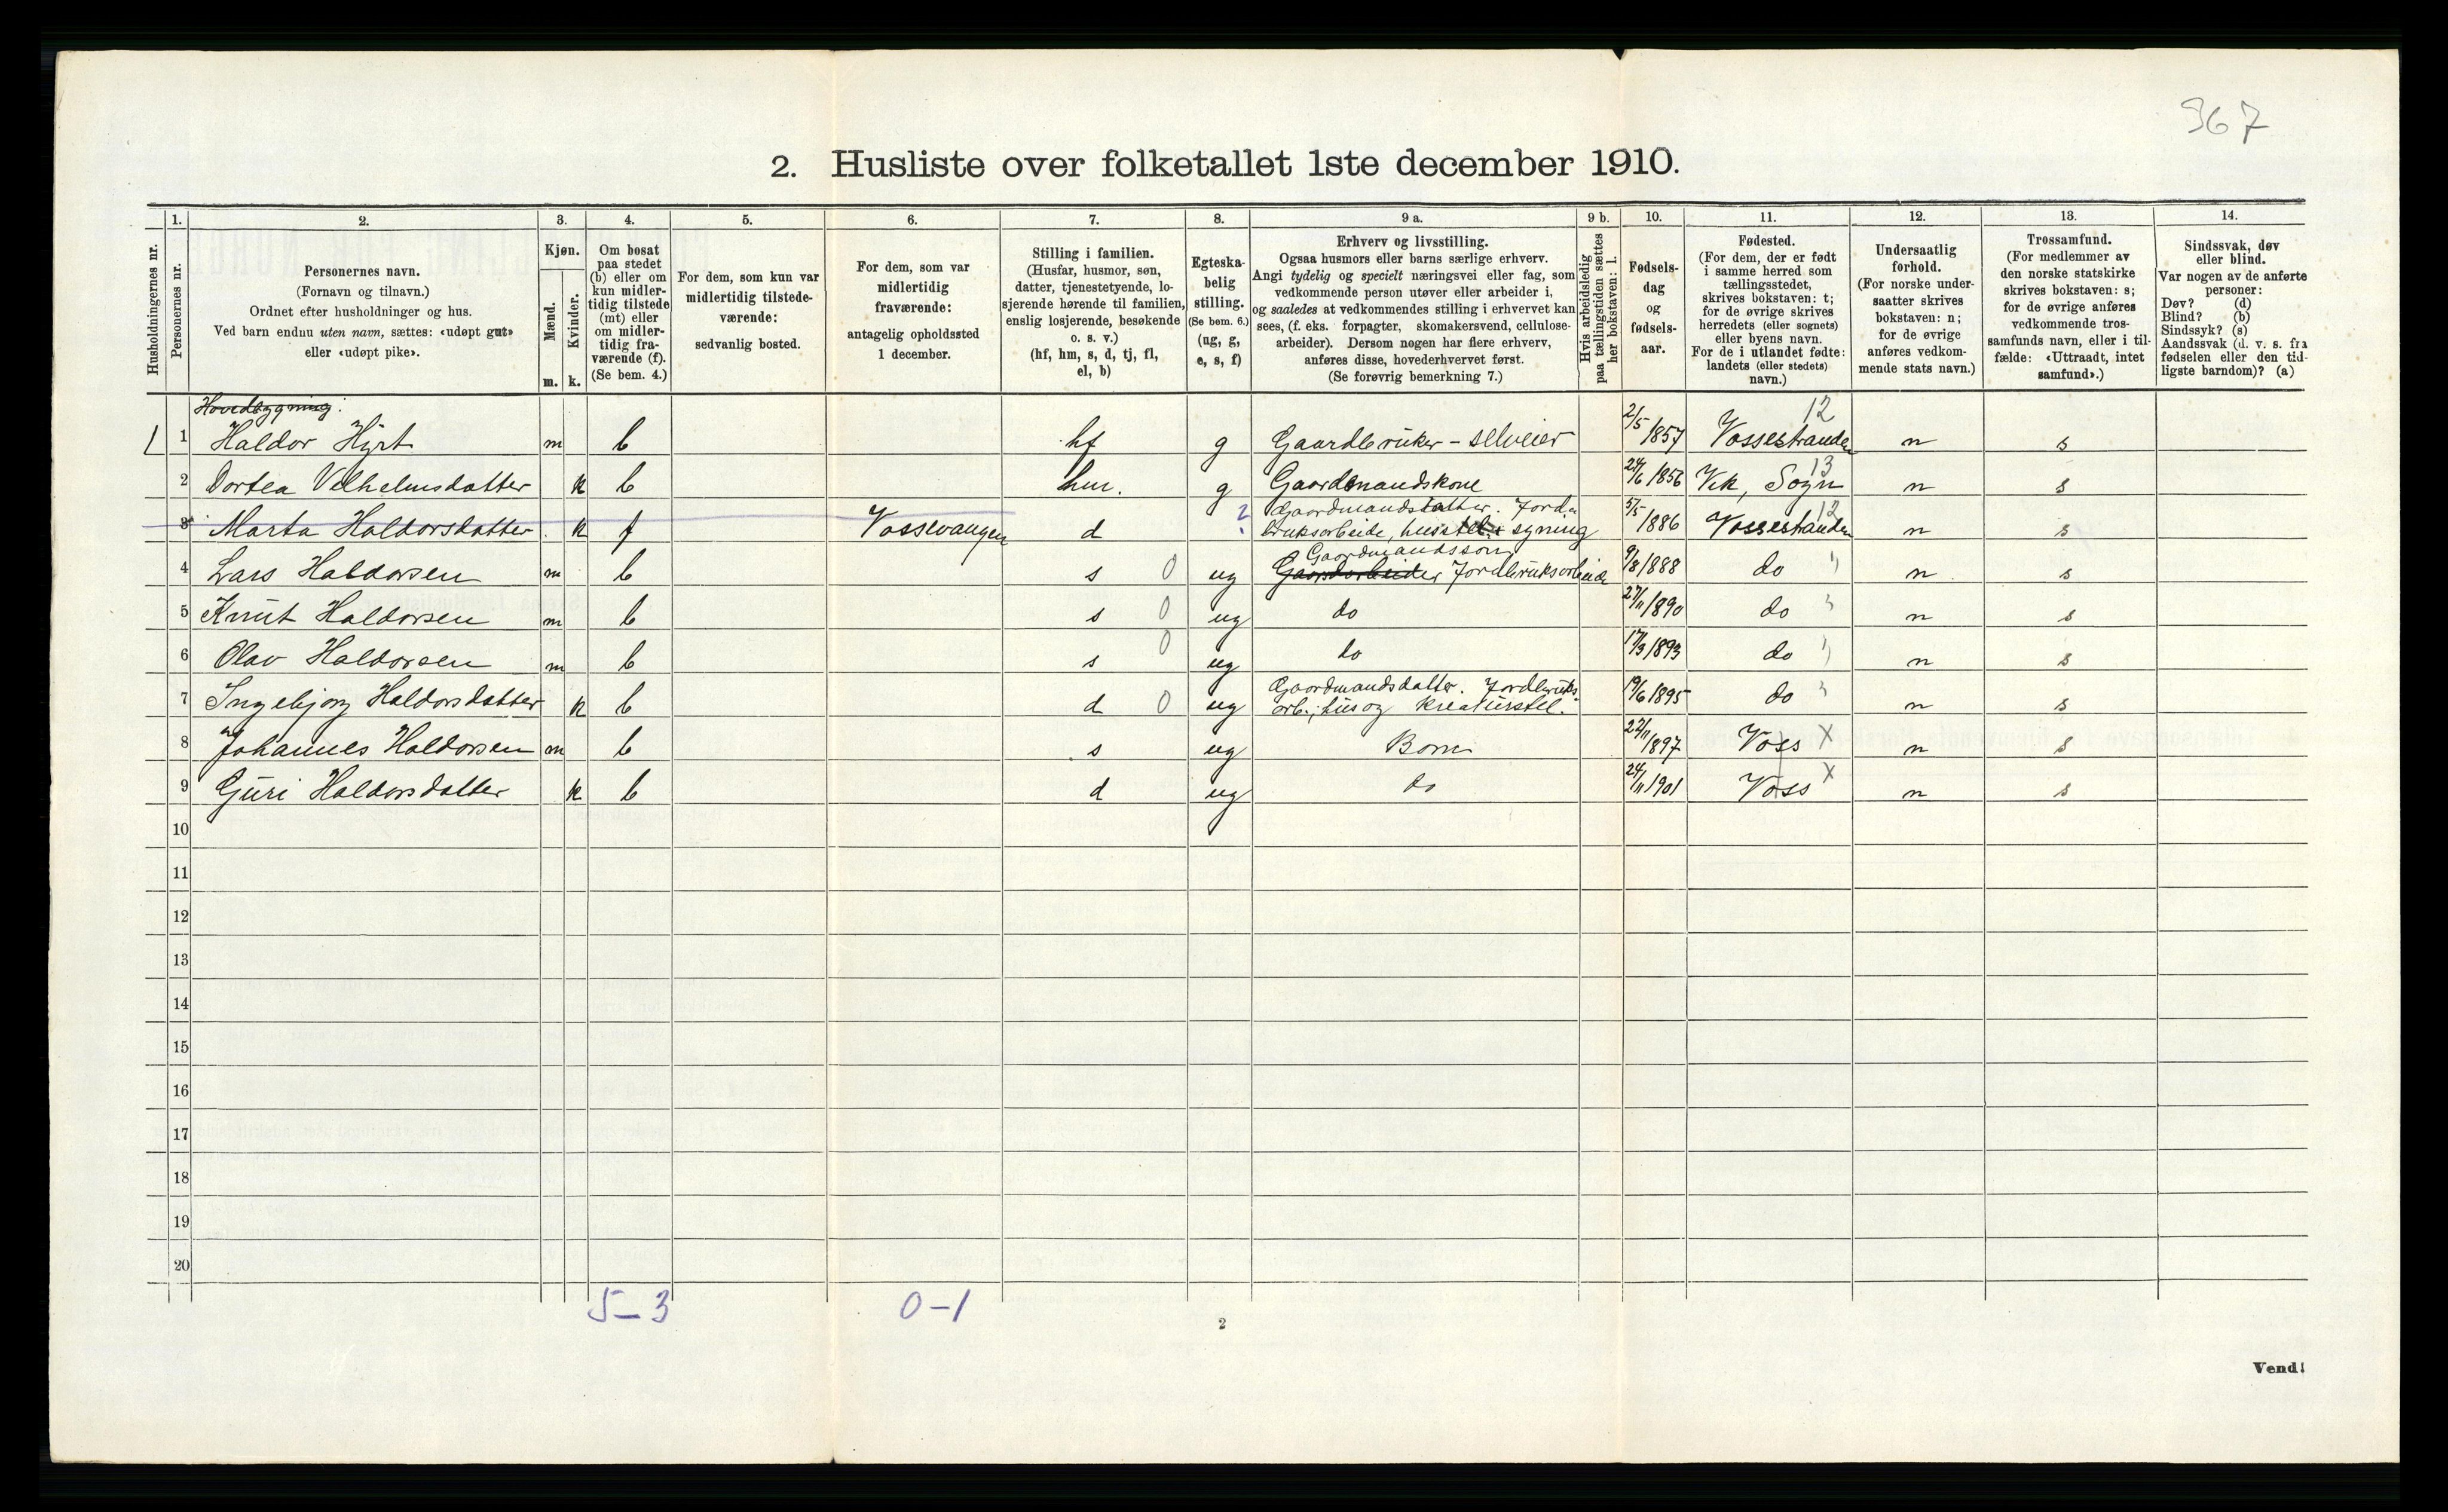 367
2. Husliste over folketallet 1ste december 1910.
1. 2. 3. 4. 5. 6. 7. 8. 9 a. 9 b. 10. 11. 12. 13. 14.
Husholdningernes nr.
Personernes nr.
Personernes navn.
(Fornavn og tilnavn.)
Ordnet efter husholdninger og hus.
Ved barn endnu uten navn, sættes: «udøpt gut»
eller «udøpt pike».
Kjøn.
Mænd.
Kvinder.
m. k.
Om bosat
paa stedet
(b) eller om
kun midler-
tidig tilstede
(mt) eller
om midler-
tidig fra-
værende (f).
(Se bem. 4.)
For dem, som kun var
midlertidig tilstede-
værende:
sedvanlig bosted.
For dem, som var
midlertidig
fraværende:
antagelig opholdssted
1 december.
Stilling i familien.
(Husfar, husmor, søn,
datter, tjenestetyende, lo-
sjerende hørende til familien,
enslig losjerende, besøkende
o. s. v.)
(hf, hm, s, d, tj, fl,
el, b)
Egteska-
belig
stilling.
(Se bem. 6.)
(ug, g,
e, s, f)
Erhverv og livsstilling.
Ogsaa husmors eller barns særlige erhverv.
Angi tydelig og specielt næringsvei eller fag, som
vedkommende person utøver eller arbeider i,
og saaledes at vedkommendes stilling i erhvervet kan
sees, (f. eks. forpagter, skomakersvend, cellulose-
arbeider). Dersom nogen har flere erhverv,
anføres disse, hovederhvervet først.
(Se forøvrig bemerkning 7.)
Hvis arbeidsledig
paa tællingstiden sættes
her bokstaven: l.
Fødsels-
dag
og
fødsels-
aar.
Fødested.
(For dem, der er født
i samme herred som
tællingsstedet,
skrives bokstaven: t;
for de øvrige skrives
herredets (eller sognets)
eller byens navn.
For de i utlandet fødte:
landets (eller stedets)
navn.)
Undersaatlig
forhold.
(For norske under-
saatter skrives
bokstaven: n;
for de øvrige
anføres vedkom-
mende stats navn.)
Trossamfund.
(For medlemmer av
den norske statskirke
skrives bokstaven: s;
for de øvrige anføres
vedkommende tros-
samfunds navn, eller i til-
fælde: «Uttraadt, intet
samfund».)
Sindssvak, døv
eller blind.
Var nogen av de anførte
personer:
Døv? (d)
Blind? (b)
Sindssyk? (s)
Aandssvak (d. v. s. fra
fødselen eller den tid-
ligste barndom)? (a)
Hovedbygning:
1 1 Haldor Hirt m b hf g Gaardbruker - selveier 2/5 1857 Vossestranden 12 n s
2 Dortea Vilhelmsdatter k b hm. g Gaardmandskone 24/6 1856 Vik, Sogn 13 n s
3 Marta Haldorsdatter k f Vossevangen d ? Gaardmandsdatter. Jord-
bruksarbeide, husstel, syning 5/5 1886 Vossestranden 12 n s
4 Lars Haldorsen m b s 0 ug Gaardmandsson
Gaardarbeider Jordbruksarbeide 9/8 1888 do n s
5 Knut Haldorsen m b s 0 ug do 27/11 1890 do n s
6 Olav Haldorsen m b s 0 ug do 17/3 1893 do n s
7 Ingebjorg Haldorsdatter k b d 0 ug Gaardmandsdatter. Jordbruks-
arb.; hus og kreaturstel. 19/6 1895 do n s
8 Johannes Haldorsen m b s ug Barn 22/11 1897 Voss X n s
9 Guri Haldorsdatter k b d ug do 24/11 1901 Voss X n s
10
11
12
13
14
15
16
17
18
19
20
5-3 0-1
2
Vend!